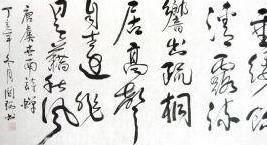 垂緌飲
清露流
響出疏桐
居高聲
自遠非
是藉秋風
唐虞世南詩蟬